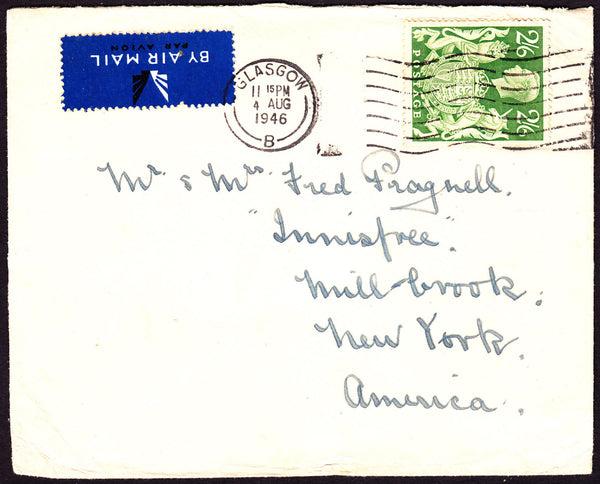 BY AIR MAIL
PAR AVION
GLASGOW
11 15 PM
4 AUG
1946
B
2/6 2/6
POSTAGE
Mr & Mrs Fred Pragnell.
"Innisfree".
Mill-brook.
New York.
America.